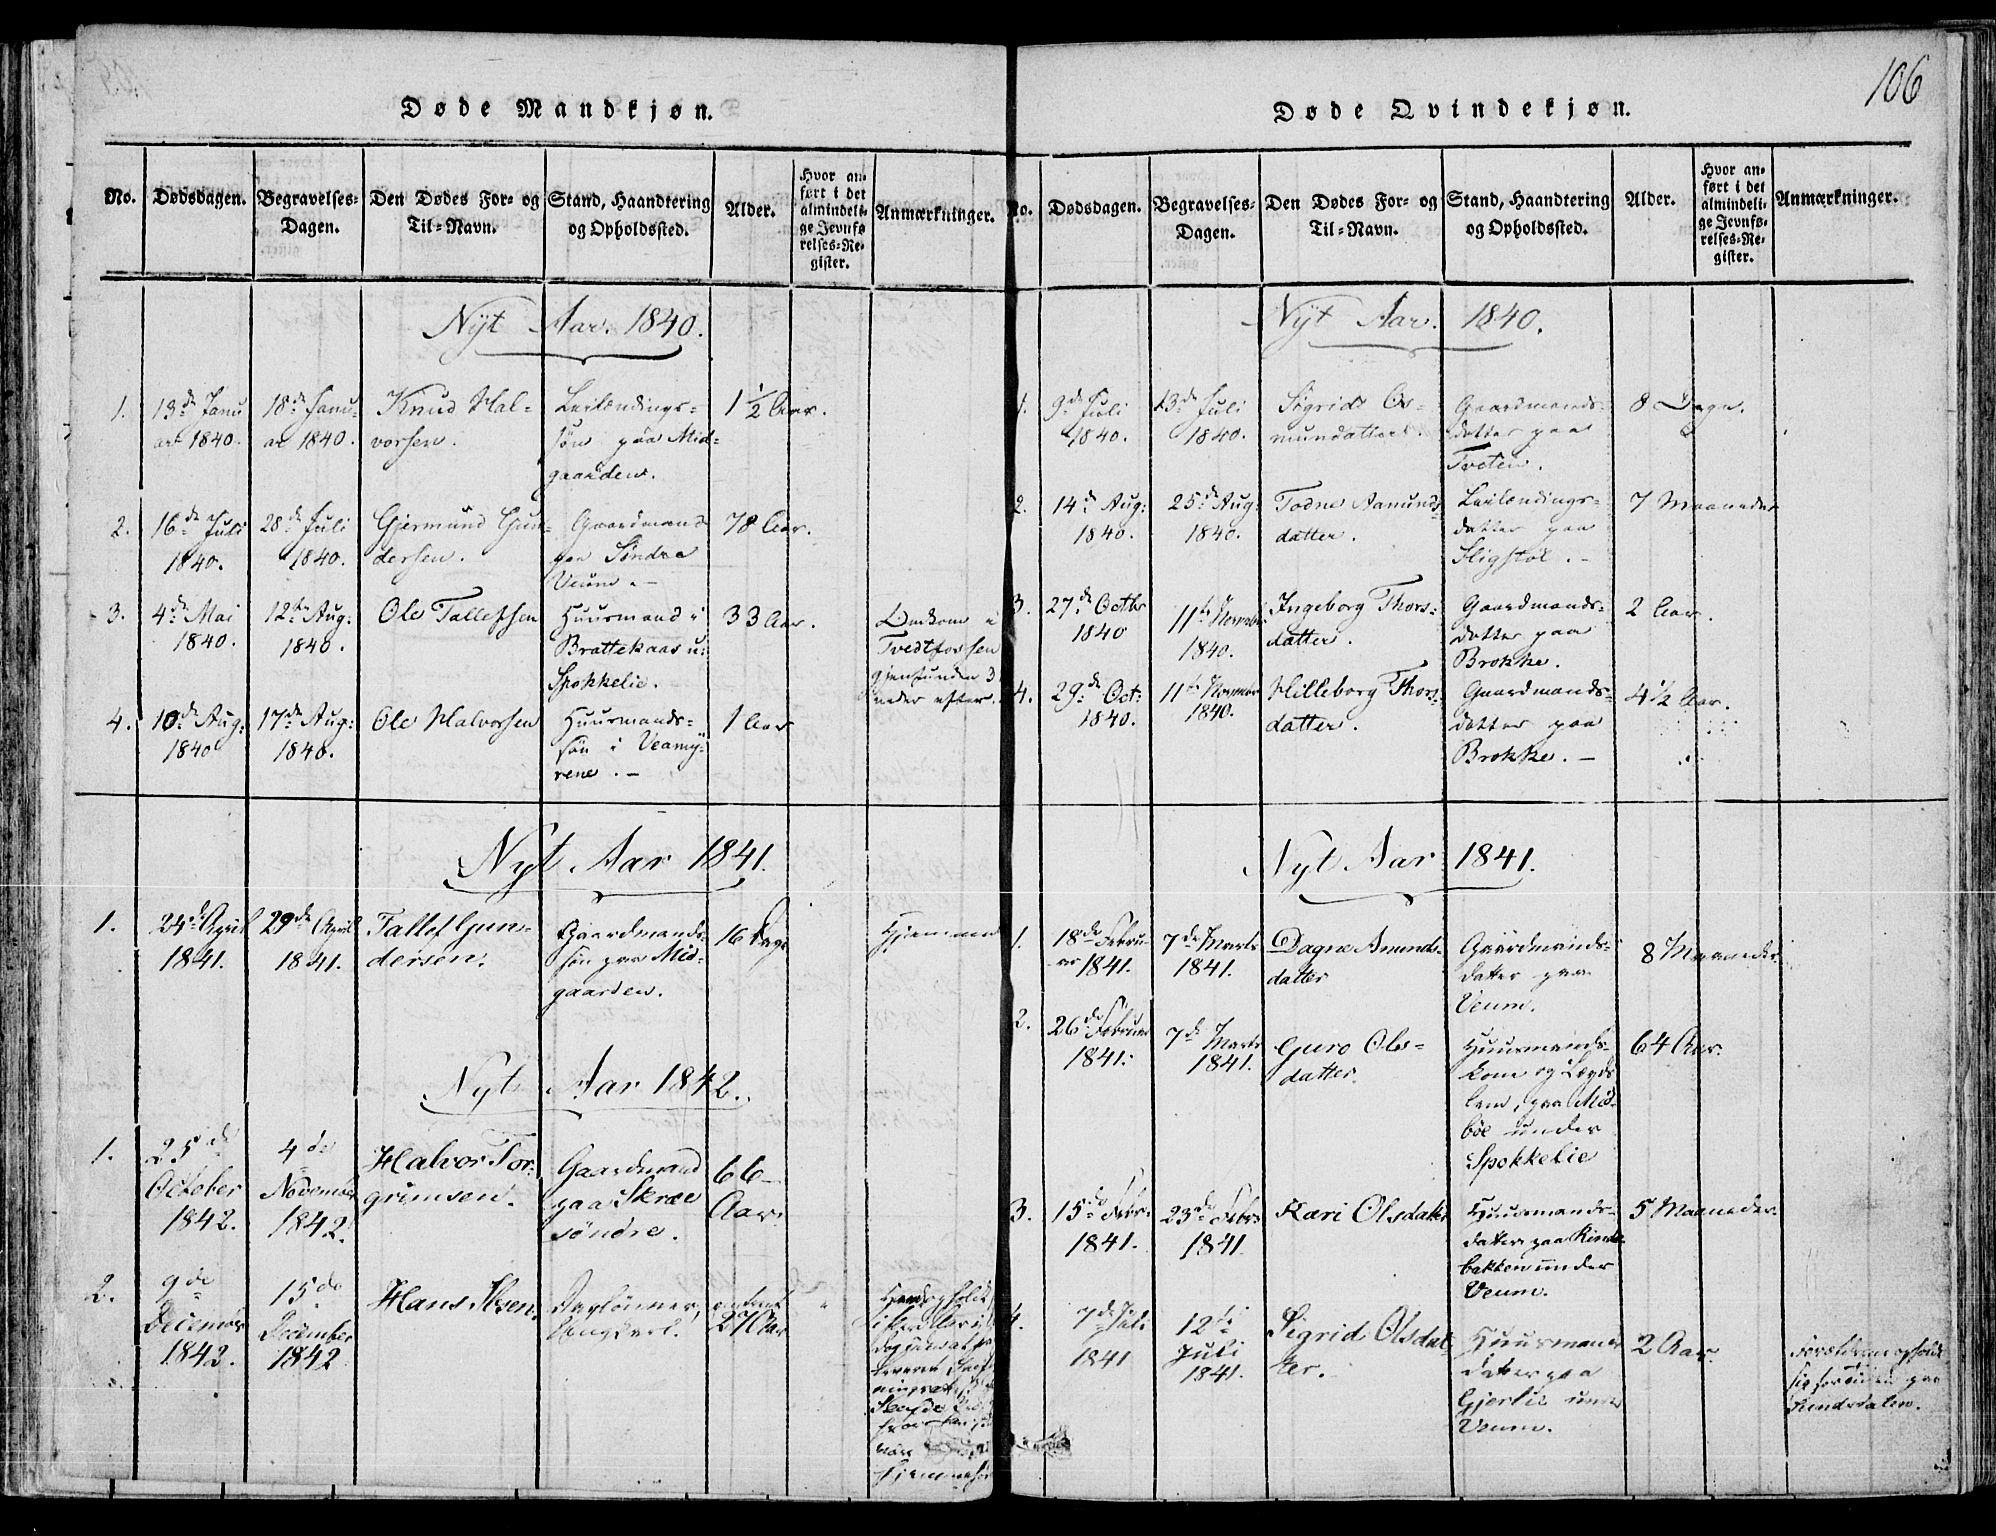 106
Døde Mandkjøn.
No. Dødsdagen. Begravelses-Dagen. Den Dødes For- og Til-Navn. Stand, Haandtering og Opholdssted. Alder. Hvor anført i det almindelige Jevnførelses-Register. Anmærkninger.
Nyt Aar. 1840.
1. 13de Janu 18de Janu- Knud Hal- Leilændings- 1 1/2 Aar.
ar 1840. ar 1840. vorsen. søn paa Mid-
gaarden.
2. 16de Juli 28de Juli Gjermund Gun- Gaardmand 78 Aar.
1840. 1840. dersen. paa Søndre
Veum.
3. 4de Mai 12te Aug: Ole Tallefsen Huusmand i 33 Aar. Omkom i
1840. 1840. Brattekaas u: Tvedtfossen
Spokkelie. gjenfunden 3
neder efter.
4. 10de Aug: 17de Aug: Ole Halvorsen Huusmands- 1 Aar
1840 1840. søn i Veamy-
rene.
Nyt Aar 1841.
1. 24de April 29de April Tallef Gun- Gaardmands- 16 Dage Hjemmed
1841. 1841. dersen. søn paa Mid-
gaarden.
Nyt Aar 1842.
1. 25de 4de Halvor Tor- Gaardmand 66
October November grimsen. paa Skree Aar.
1842. 1842. søndre.
2. 9de 15de Hans 27 Aar
December December
1842. 1842
Døde Qvindekjøn.
No. Dødsdagen. Begravelses-Dagen. Den Dødes For- og Til-Navn. Stand, Haandtering og Opholdssted. Alder. Hvor anført i det almindelige Jevnførelses-Register. Anmærkninger.
Nyt Aar. 1840.
1. 9de Juli 13de Juli Sigrid Os- Gaardmands- 8 Dage.
1840. 1840. mundatter. datter paa
Tveten.
2. 14de Aug: 25de Aug: Todne Aamunds Leilændings- 7 Maaneder
1840. 1840. datter. datter paa
3. 27de Octbr 11te Novembr Ingeborg Thors- Gaardmands- 2 Aar.
1840 1840. datter. datter paa
Brokke.
4. 29de Oct: 11te Novembr Hilleborg Thors- Gaardmands- 4 1/2 Aar.
1840. 1840. datter. datter paa
Brokke.
Nyt Aar 1841.
1. 18de Febru- 7de Marts Dagne Amunds- Gaardmands- 8 Maaneder
ar 1841. 1841. datter datter paa
Veum.
2. 26de Februar 7de Marts Guro Ols- Huusmands- 64 Aar.
1841. 1841. datter. kone og Lægds-
lem, paa Mid-
böe under
Spokkelie
3. 15de Febr. 23de Febr. Kari Olsdatter Huusmands- 5 Maaneder
1841. 1841 datter paa
bakken under
Veum.
4. 7de Juli 12te Sigrid Olsdat- Huusmands 2 Aar. Forældrene opholdt
1841 Juli ter. datter paa sig for Tiden paa
1841. Gjerlie under
Veum.